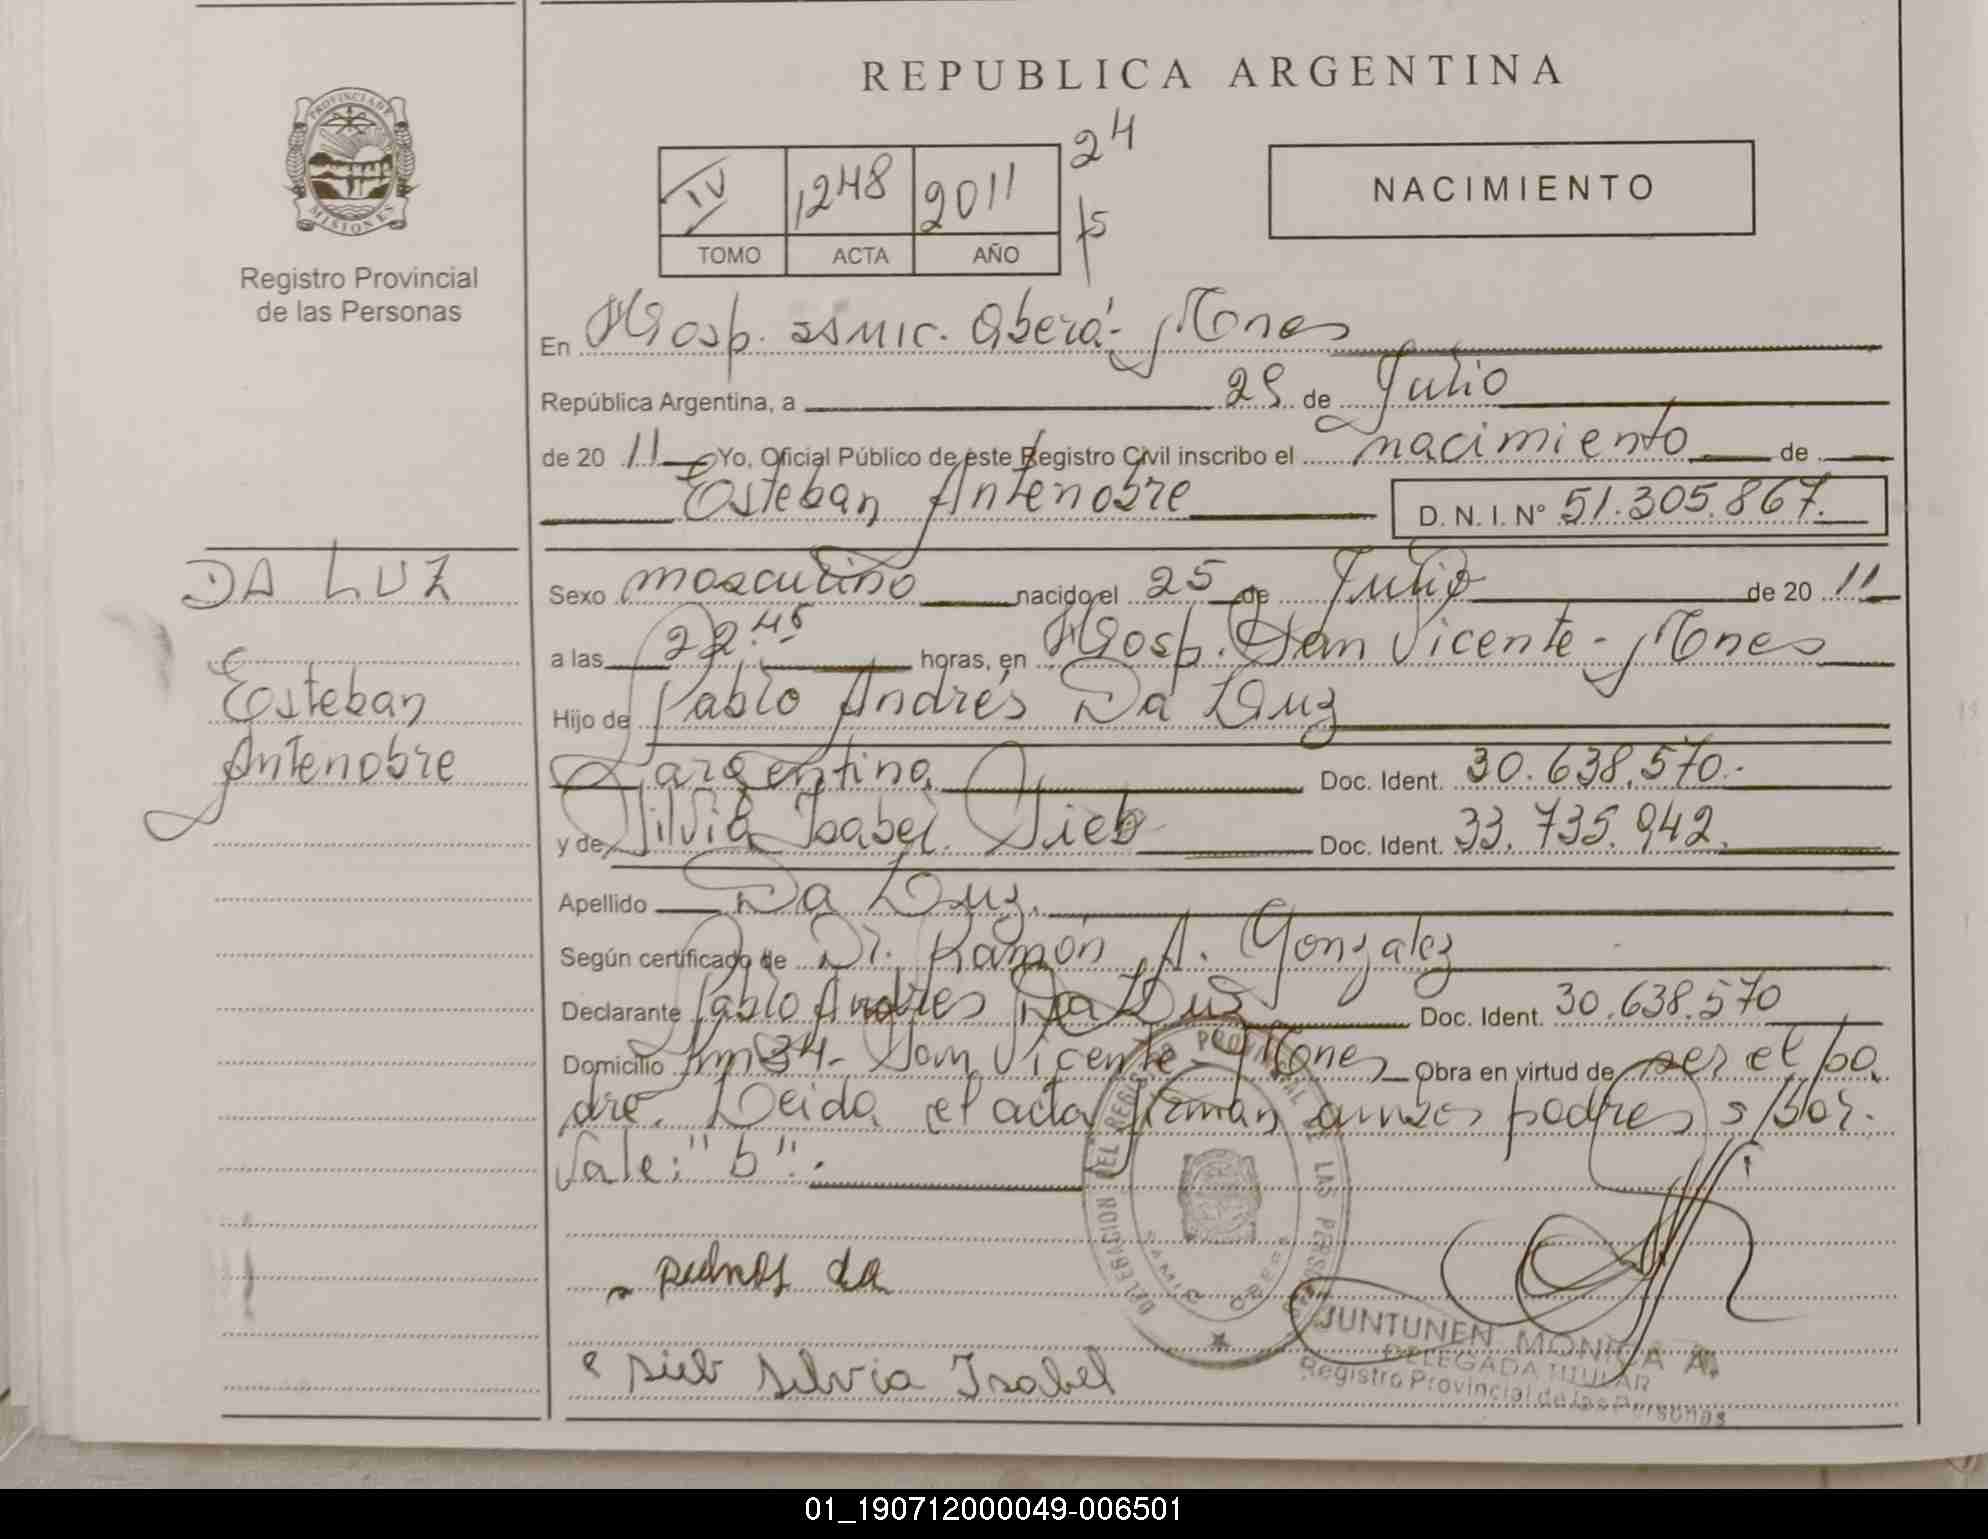 REPUBLICA ARGENTINA
PROVINCIA DE
MISIONES
Registro Provincial
de las Personas
IV 1248 2011
TOMO ACTA AÑO
24
NACIMIENTO
En Hosp. SAMIC. Oberá - Mnes
República Argentina, a 29 de Julio
de 20 11 Yo, Oficial Público de este Registro Civil inscribo el nacimiento de
Esteban Antenobre D. N. I. N° 51.305.867.
DA LUZ
Esteban
Antenobre
Sexo masculino nacido el 25 de Julio de 20 11
a las 22.45 horas, en Hosp. San Vicente - Mnes
Hijo de Pablo Andrés Da Luz
argentino Doc. Ident. 30.638.570.-
y de Silvia Isabel Sieb Doc. Ident. 33.735.942.
Apellido Da Luz.
Según certificado de Dr. Ramón A. Gonzalez
Declarante Pablo Andres Da Luz Doc. Ident. 30.638.570
Domicilio Km 34 - San Vicente - Mnes Obra en virtud de ser el pa
dre. Leida el acta firman ambos padres s/bor.
Vale: "b".
DELEGACION DEL REGISTRO PROVINCIAL DE LAS PERSONAS
SAMIC OBERA
Sieb Silvia Isabel
JUNTUNEN MONICA A.
DELEGADA TITULAR
Registro Provincial de las Personas
01_190712000049-006501